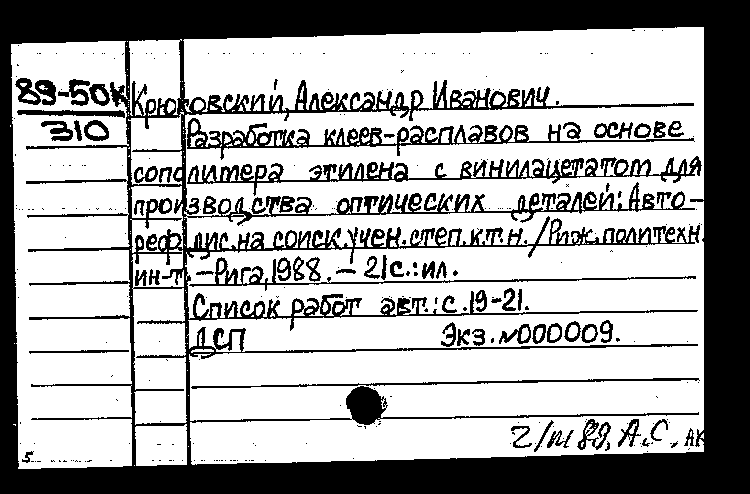 89-50К
310
Крюковский, Александр Иванович.
Разработка клеев-расплавов на основе
сополимера этилена с винилацетатом для
производства оптических деталей: Авто-
реф. дис. на соиск. учен. степ. к.т.н. / Риж. политехн.
ин-т. – Рига, 1988. – 21с.: ил.
Список работ авт.: с. 19-21.
ДСП Экз. №000009.
А.С. АК
5